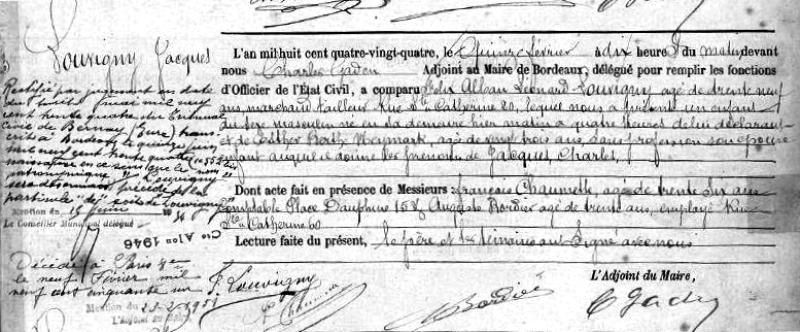 Louvigny Jacques
Rectifié par jugement en date
du huit mai mil neuf
cent trente quatre du Tribunal
Civil de Bernay (Eure) trans
crit à Bordeaux le quinze juin
mil neuf cent trente quatre
naissance en ce sens que le nom
patronymique "Louvigny"
sera désormais précédé de la
particule "de" soit de Louvigny
Mention du 15 juin 1934
Le Conseiller Municipal délégué
1946
Décédé à Paris
le neuf Février mil
neuf cent cinquante un
Mention du 21-2-1951
L'adjoint
L'an mil huit cent quatre-vingt-quatre, le Quinze février à dix heures du matin, devant
nous Charles Gaden Adjoint au Maire de Bordeaux, délégué pour remplir les fonctions
d'Officier de l'État Civil, a comparu Félix Alban Léonard Louvigny agé de trente neuf
ans, marchand tailleur Rue Ste Catherine 60, lequel nous a présenté un enfant
du sexe masculin né en sa demeure hier matin à quatre heures de lui déclarant
et de Esther Berthe Neymark, agée de vingt trois ans, sans profession son épouse
enfant auquel il donne les prénoms de Jacques Charles,
Dont acte fait en présence de Messieurs : François Chaumette, agé de trente six ans
comptable Place Dauphine 15 & Auguste Bordier agé de trente ans, employé Rue
Ste Catherine 60
Lecture faite du présent, le père et les témoins ont signé avec nous
L'Adjoint du Maire,
F. Louvigny
Bordier